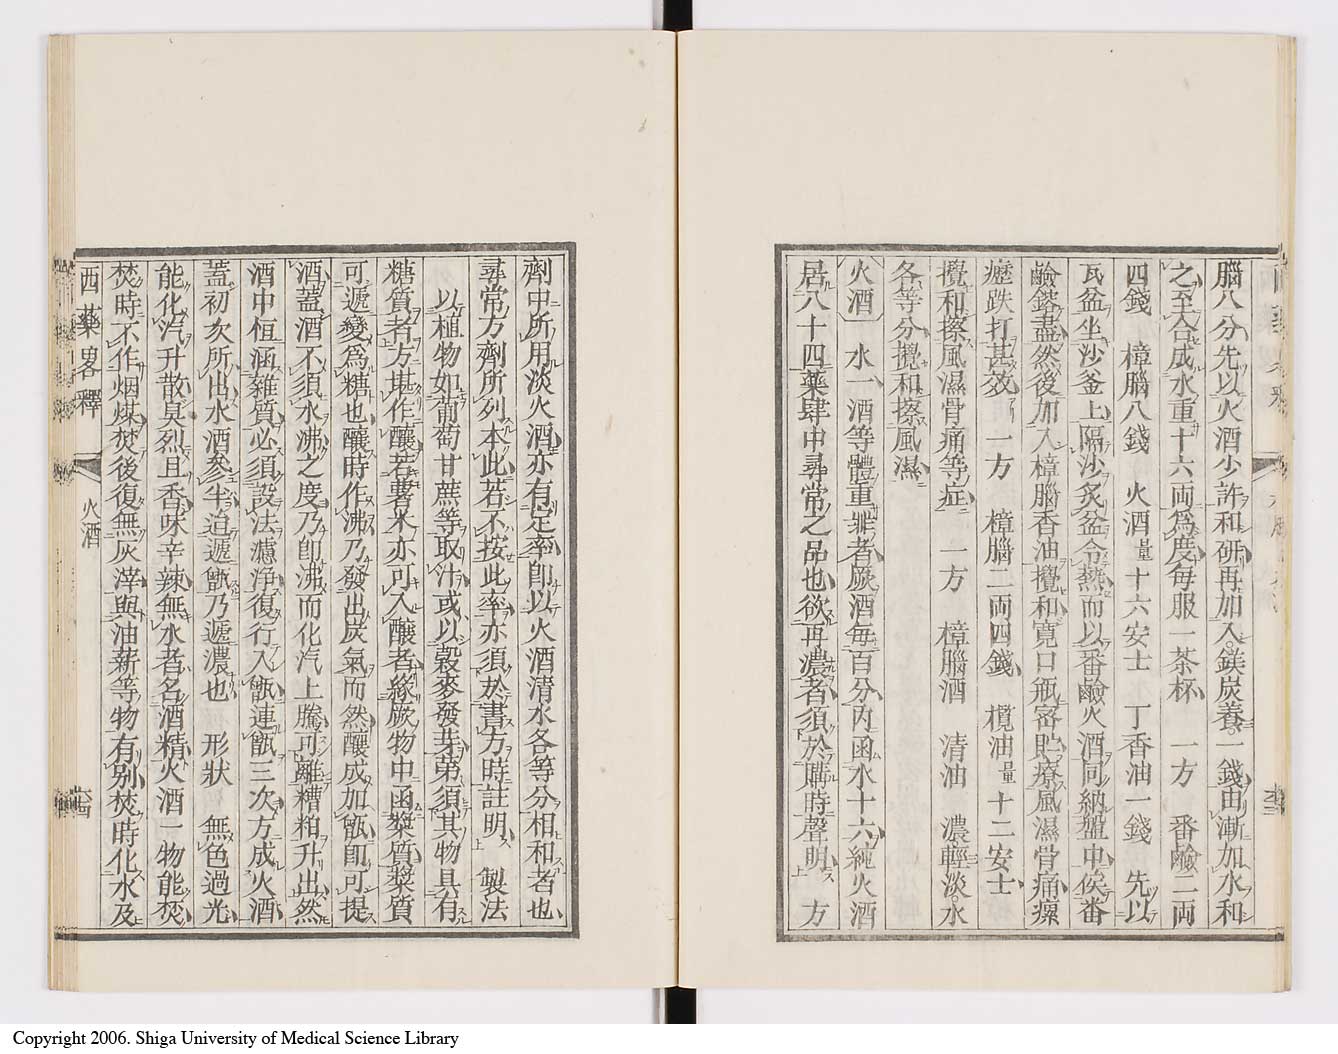 腦八分先以火酒少許和研再加入鎂炭養一錢由漸加水和
之至合成水重十六両為度每服一茶杯 一方 番鹼二両
四錢 樟腦八錢 火酒量十六安士 丁香油一錢 先以
瓦盆坐沙釜上隔沙炙盆令熱而以番鹼火酒同納盤中俟番
鹼鎔盡然後加入樟腦香油攪和寬口瓶密貯療風濕骨痛瘰
癧跌打甚效 一方 樟腦二両四錢 欖油量十二安士
攪和擦風濕骨痛等症 一方 樟腦酒 清油 濃輕淡水
各等分攪和擦風濕
火酒 水一酒等體重 者厥酒每百分內函水十六純火酒
居八十四藥肆中尋常之品也欲再濃者須於購時聲明 方
劑中所用淡火酒亦有定率卽以火酒清水各等分相和者也
尋常方劑所列本此若不按此率亦須於書方時註明 製法
以植物如葡萄甘蔗等取汁或以穀麥發芽第須其物具有
糖質者方堪作釀若薯米亦可入釀者緣厥物中函漿質漿質
可遞變為糖也釀時作沸乃發出炭氣而然釀成加甑卽可提
酒蓋酒不須水沸之度乃卽沸而化汽上騰可離糟粕升出然
酒中恒涵雜質必須設法濾淨復行入甑連甑三次方成火酒
蓋初次所出水酒參半迨遞甑乃遞濃也 形狀 無色過光
能化汽升散臭烈且香味辛辣無水者名酒精火酒一物能焚
焚時不作烟煤焚後復無灰滓與油薪等物有別焚時化水及
西藥畧釋
火酒
六四
Copyright 2006. Shiga University of Medical Science Library